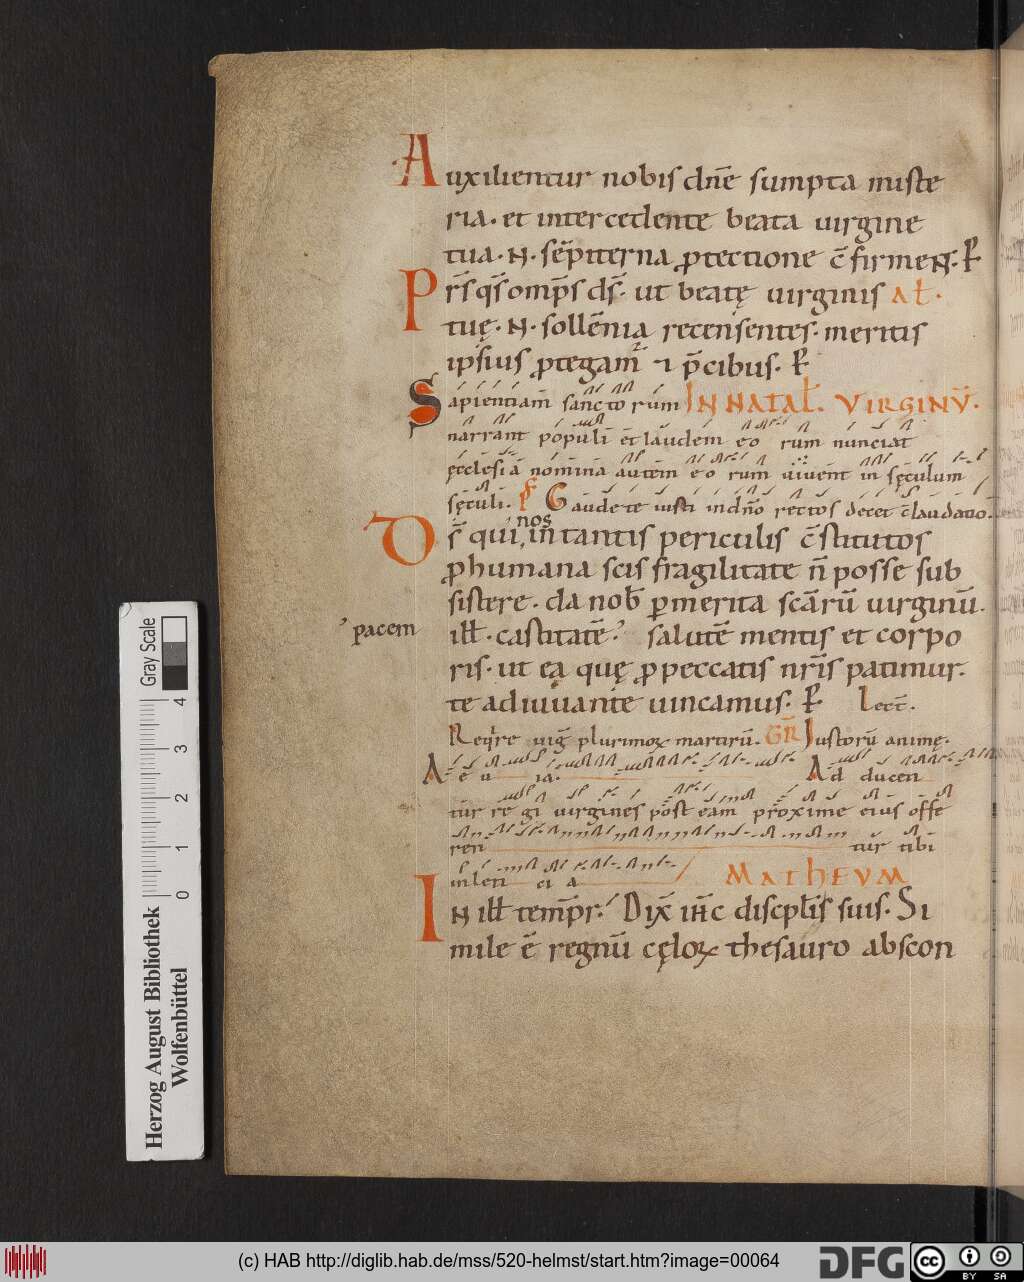 Auxilientur nobis dn̄e sumpta miste
ria. et intercedente beata uirgine
tua. N. sēpiterna ꝓtectione c̄firmeN̄. P̄
Pr̄s qs̄ omp̄s ds̄. ut beatę uirginis AL̄.
tuę. N. sollēnia recensentes. meritis
ipsius ꝓtegam̄ ⁊ p̄cibus. P̄
Sapientiam sanctorum IN NATAL̄. VIRGINV̄.
narrant populi et laudem eorum nunciat
ęcclesia nomina autem eorum uiuent in sęculum
sęculi. Ps̄ Gaudete iusti in dn̄o rectos decet c̄laudatio.
Ds̄ qui nos in tantis periculis c̄stitutos
ꝓ humana scis fragilitate n̄ posse sub
sistere. da nob̄ ꝑ merita scārū uirginū.
pacem
ill̄. castitatē salutē mentis et corpo
ris. ut ea quę ꝓ peccatis nr̄is patimur.
te adiuuante uincamus. P̄ Lect̄.
Req̄re uig̅ plurimoꝝ martirū. GR̄ Iustorū animę.
Ae u ia. Ad ducen
tur regi uirgines post eam proxime eius offe
ren tur tibi
in leti ci a MATHEVM
IN ill̄ temp̄r. Dix̄ ih̄c discpl̄is suis. Si
mile ē regnū cęloꝝ thesauro abscon
Gray Scale
4
3
2
1
0
Herzog August Bibliothek
Wolfenbüttel
(c) HAB http://diglib.hab.de/mss/520-helmst/start.htm?image=00064
DFG
cc
BY SA